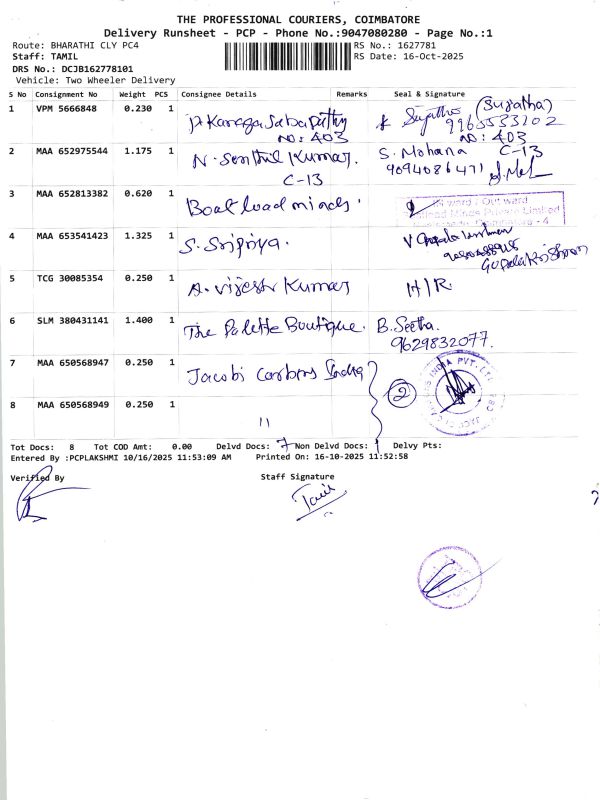 THE PROFESSIONAL COURIERS, COIMBATORE
Delivery Runsheet - PCP - Phone No.:9047080280 - Page No.:1
Route: BHARATHI CLY PC4 RS No.: 1627781
Staff: TAMIL RS Date: 16-Oct-2025
DRS No.: DCJB162778101
Vehicle: Two Wheeler Delivery
S No Consignment No Weight PCS Consignee Details Remarks Seal & Signature
1 VPM 5666848 0.230 1 (Sujatha)
NO: 403 NO: 403
2 MAA 652975544 1.175 1 N. Senthil Kumar. S. Mohana C-13
C-13 9094086471
3 MAA 652813382 0.620 1 Boat load minds. Private Limited
4 MAA 653541423 1.325 1 S. Sripriya.
Gopalakrishnan
5 TCG 30085354 0.250 1 A. Vijesh Kumar H/R.
6 SLM 380431141 1.400 1 The Palette Boutique. B. Seetha.
9629832077.
7 MAA 650568947 0.250 1 Jacobi Carbons India 2
8 MAA 650568949 0.250 1 11
Tot Docs: 8 Tot COD Amt: 0.00 Delvd Docs: 7 Non Delvd Docs: 1 Delvy Pts:
Entered By :PCPLAKSHMI 10/16/2025 11:53:09 AM Printed On: 16-10-2025 11:52:58
Verified By Staff Signature
Tamil